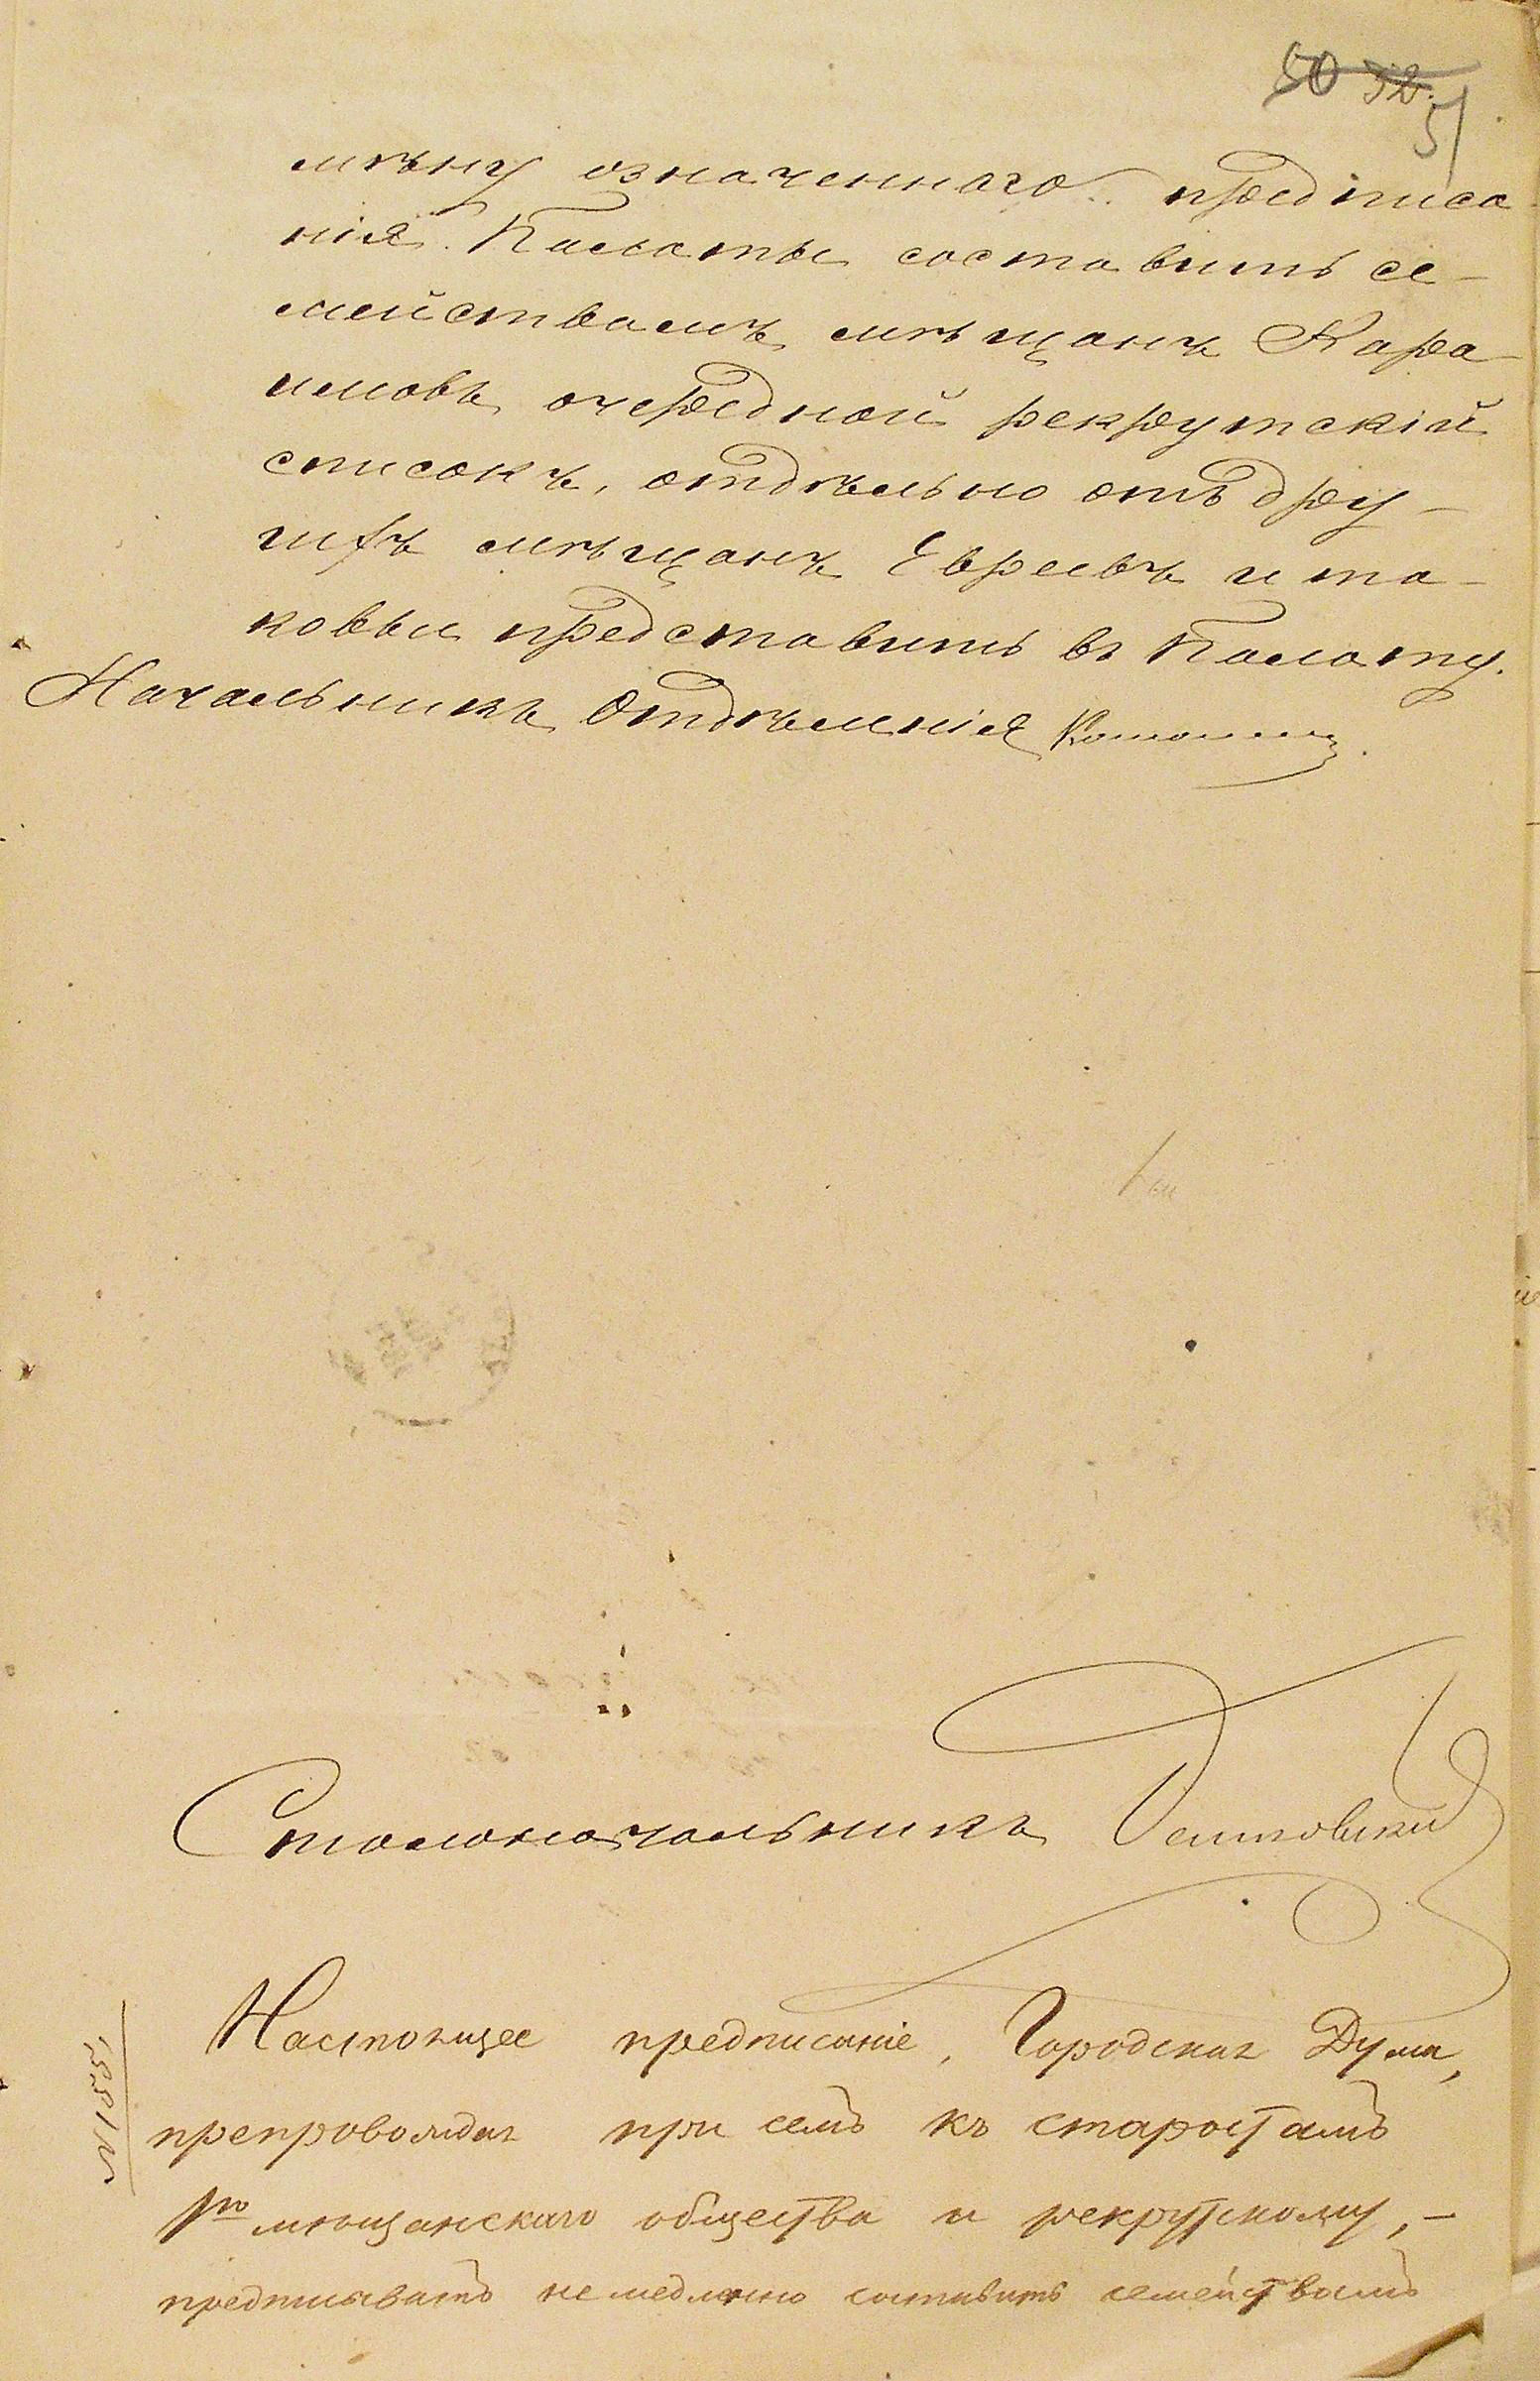 50 32.
51
мѣну означеннаго предписа
нія Палаты составить се-
мействамъ мѣщанъ Кара
имовъ очередной рекрутскій
списокъ, отдѣльно отъ дру-
гихъ мѣщанъ Евреевъ и та-
ковый представить въ Палату.
Начальникъ Отдѣленія
Столоначальникъ
Настоящее предписаніе, Городская Дума,
препровождая при семъ къ старостамъ
1го мѣщанскаго общества и рекрутскому, -
предписываетъ немедленно составить семействамъ
№ 155,